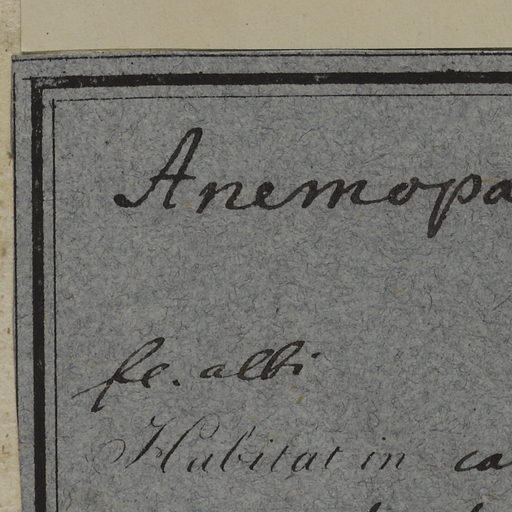 Anemopa
fl. albi
Habitat in ca